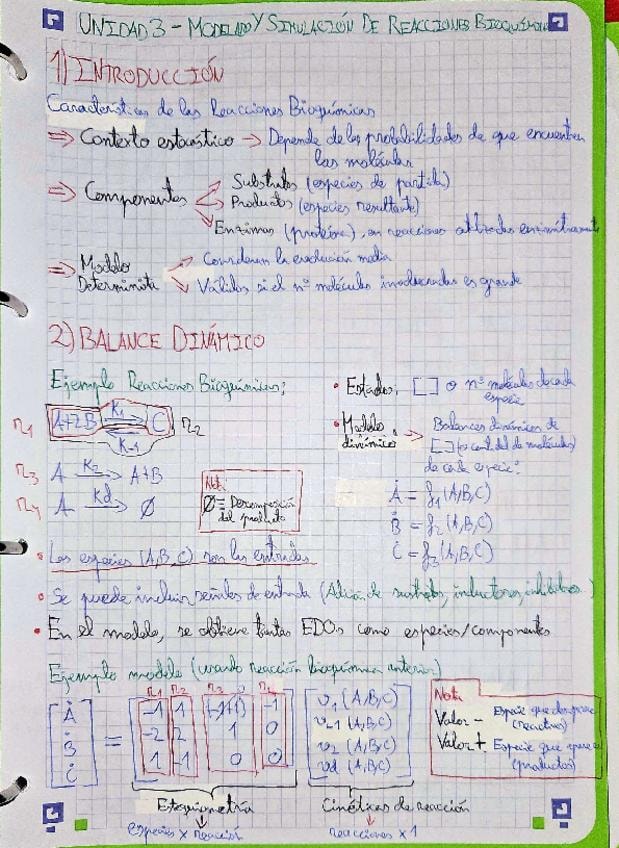 UNIDAD 3 - MODELADO Y SIMULACIÓN DE REACCIONES BIOQUÍMICAS
1) INTRODUCCIÓN
Características de las Reacciones Bioquímicas
⇒ Contexto estocástico → Depende de las probabilidades de que encuentren
las moléculas
⇒ Componentes
Substratos (especies de partida)
Productos (especies resultante)
Enzimas (proteína), en reacciones
⇒ Modelo
Determinista
Consideran la evolución media
Válidos si el nº moléculas involucradas es grande
2) BALANCE DINÁMICO
Ejemplo Reacciones Bioquímicas:
r1 A+2B K1 K-1 C r2
r3 A K2→ A+B
r4 A Kd→ ∅
Nota:
∅ ≡ Descomposición
del producto
• Estados: [ ] o nº moléculas de cada
especie
• Modelo
dinámico:
→ Balances dinámicos de
[ ] (o cant. de moléculas)
de cada especie:
Ȧ = f1 (A,B,C)
Ḃ = f2 (A,B,C)
Ċ = f3 (A,B,C)
• Las especies (A,B,C) son las entradas
• Se puede incluir señales de entrada (Adición de sustrato, inductores, inhibidores)
• En el modelo, se obtiene tantas EDOs como especies/componentes
Ejemplo modelo (usando reacción bioquímica anterior)
r1 r2 r3 r4
Ȧ -1 1 (-1+1) -1 v1 (A,B,C)
Ḃ = -2 2 1 0 v-1 (A,B,C)
Ċ 1 -1 0 0 v2 (A,B,C)
vd (A,B,C)
Nota
Valor - Especie que desaparece
(reactivo)
Valor + Especie que aparece
(productos)
Estequiometría
especies x reacción
Cinéticas de reacción
reacciones x 1